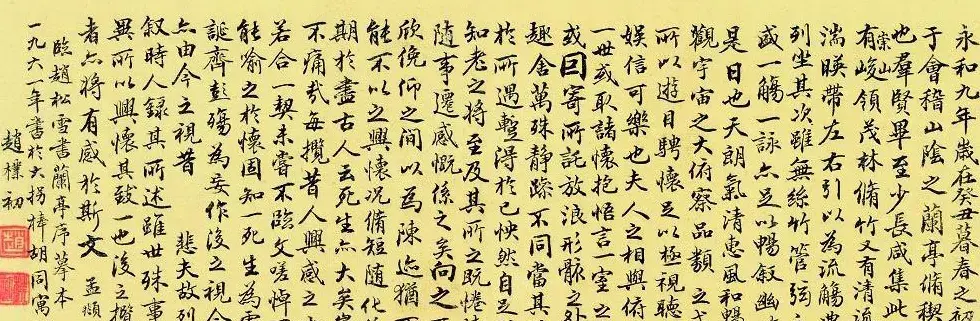 永和九年歲在癸丑暮春之初
于會稽山陰之蘭亭脩禊
也羣賢畢至少長咸集此
有崇山峻領茂林脩竹又有清流
湍暎帶左右引以為流觴
列坐其次雖無絲竹管弦
盛一觴一詠亦足以暢叙幽
是日也天朗氣清惠風和暢
觀宇宙之大俯察品類之
所以遊目騁懷足以極視聽
娛信可樂也夫人之相與俯
一世或取諸懷抱悟言一室之
或因寄所託放浪形骸之外
趣舍萬殊静躁不同當其
於所遇蹔得於己怏然自足
知老之將至及其所之既惓
隨事遷感慨係之矣向之
欣俛仰之間以為陳迹猶
能不以之興懷况脩短隨化
期於盡古人云死生亦大矣
不痛哉每攬昔人興感之
若合一契未嘗不臨文嗟悼
能喻之於懷固知一死生為
誕齊彭殤為妄作後之視今
亦由今之視昔 悲夫故列
叙時人録其所述雖世殊事
異所以興懷其致一也後之攬
者亦將有感於斯文 孟頫
臨趙松雪書蘭亭序摹本
一九六一年書於大拐棒胡同寓
趙樸初